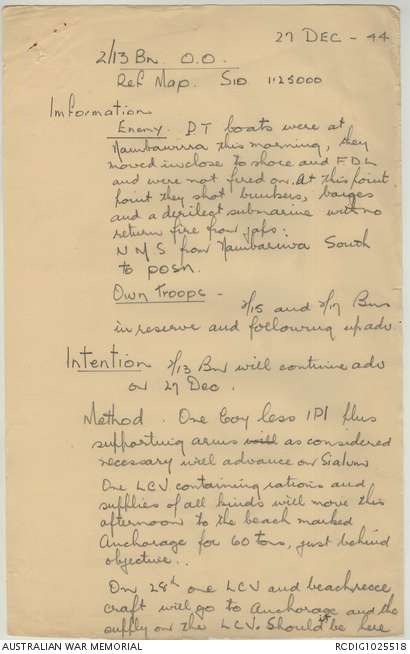 27 DEC - 44
2/13 Bn. O.O.
Ref Map. SIO 1:25000
Information
Enemy. PT boats were at
Nambawirra this morning, they
moved in close to shore and FDL
and were not fired on. At this point
point they shot bunkers, barges
and a derilect submarine with no
return fire from japs.
N M S from Nambariwa South
to posn.
Own Troops - 2/15 and 2/17 Bns
in reserve and following up adv.
Intention 2/13 Bn will continue adv
on 27 Dec.
Method. One Coy less 1 Pl plus
supporting arms will as considered
necessary will advance on Sialum
One LCV containing rations and
supplies of all kinds will move this
afternoon to the beach marked
Anchorage for 60 tons, just behind
objective..
On 28th one LCV and beach recce
craft will go to Anchorage and the
supply on the LCV. Should be here
AUSTRALIAN WAR MEMORIAL
RCDIG1025518